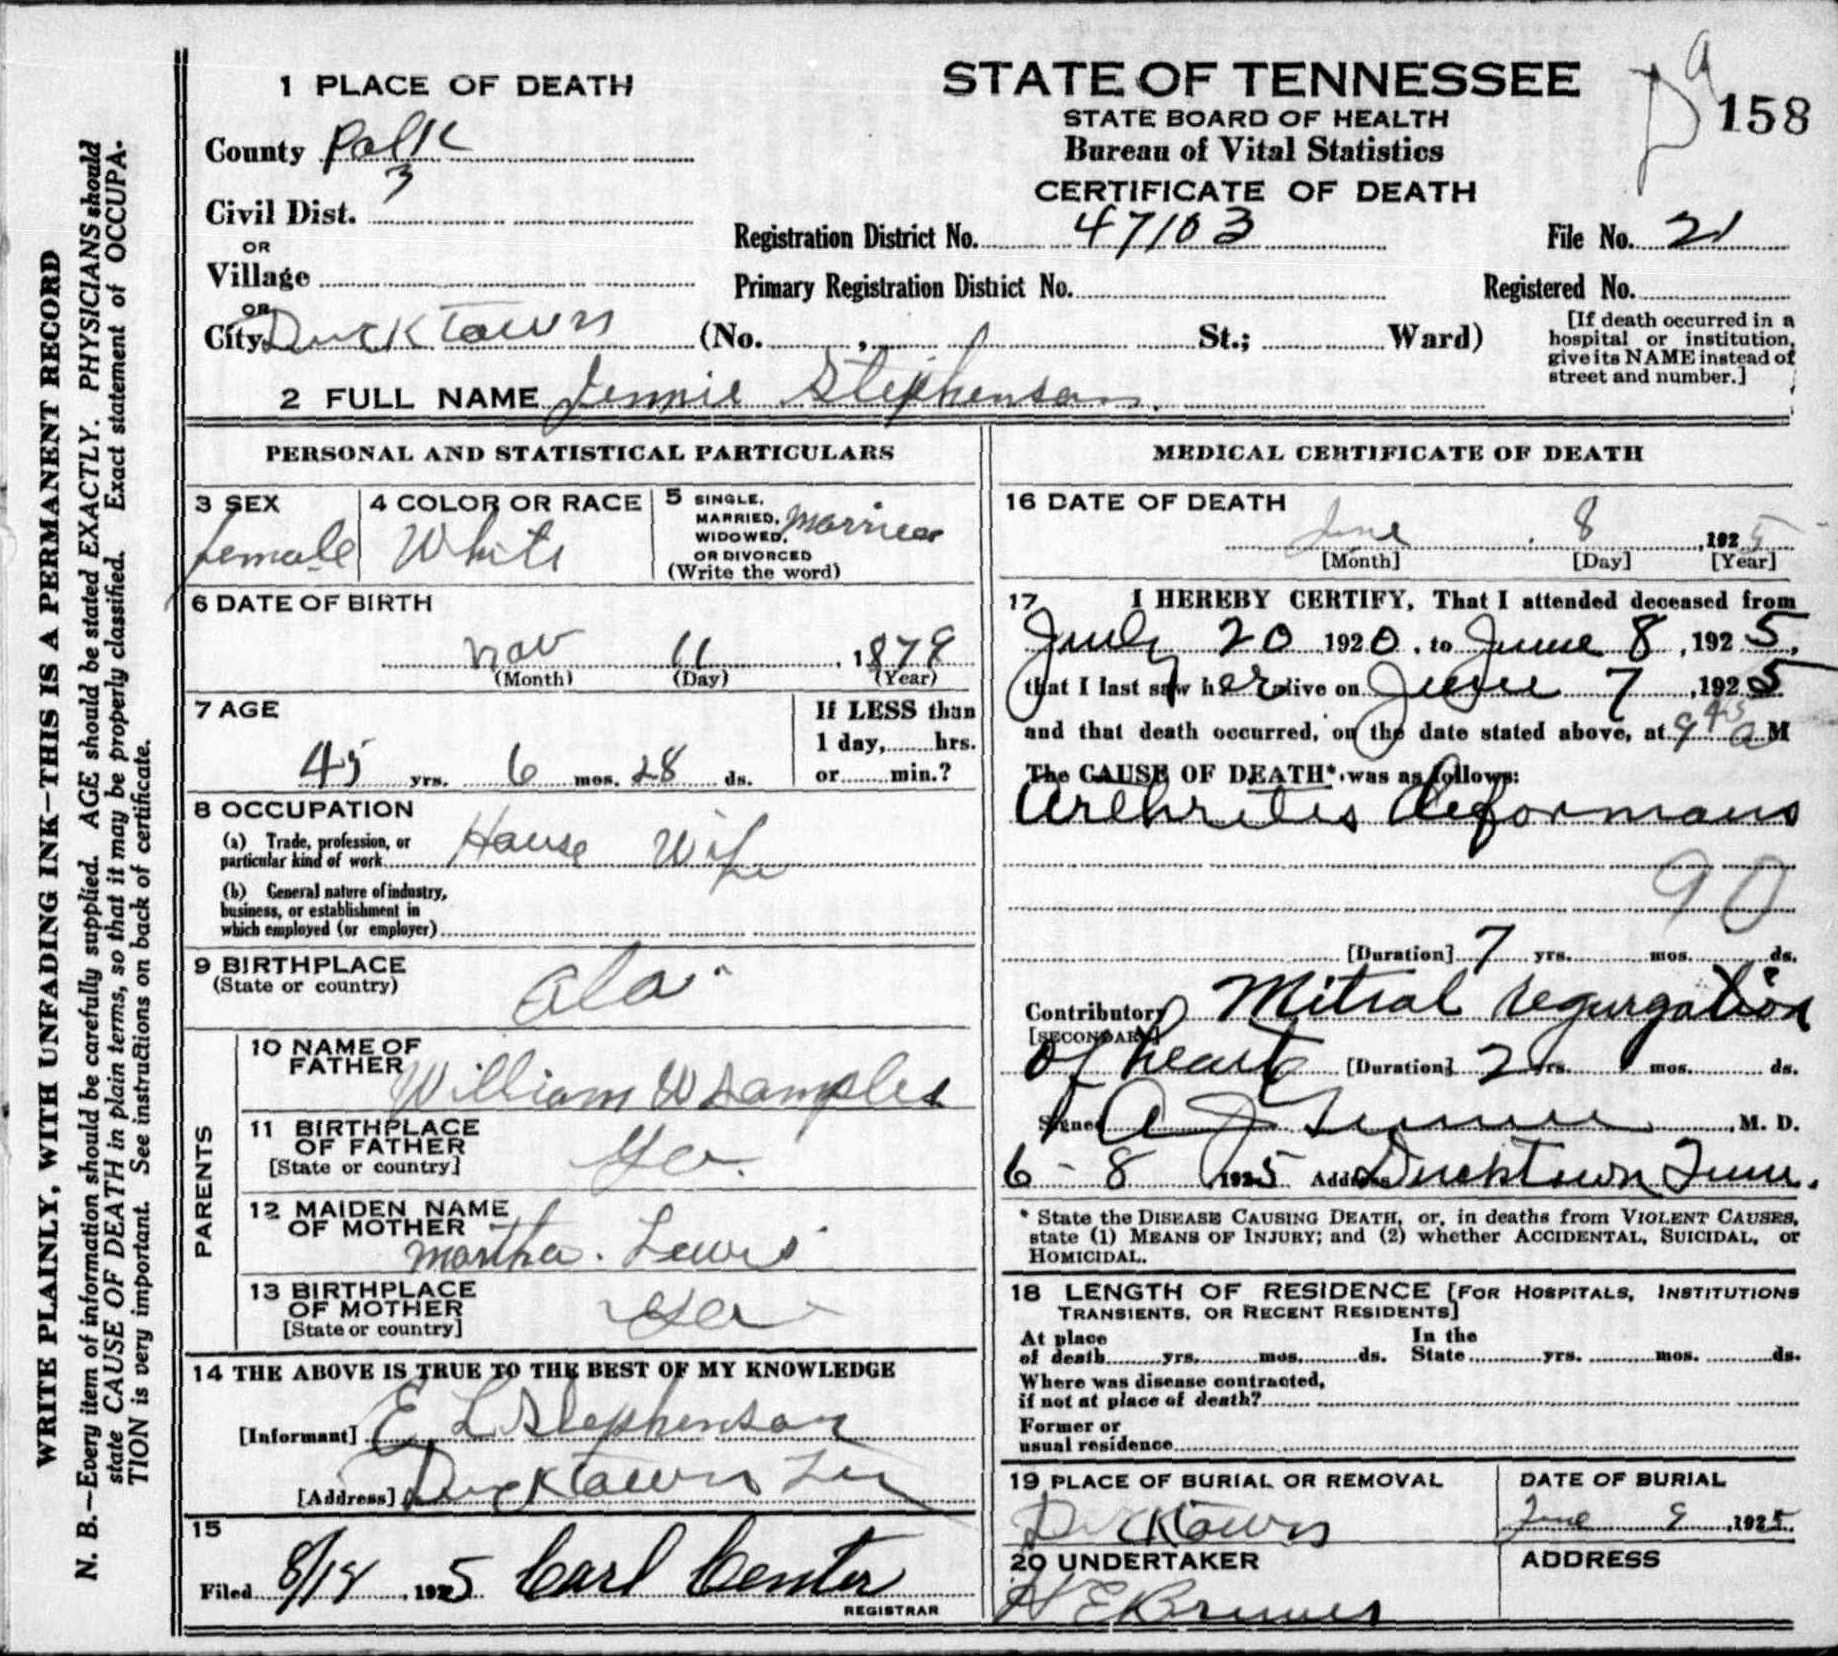 WRITE PLAINLY, WITH UNFADING INK—THIS IS A PERMANENT RECORD
N. B.—Every item of information should be carefully supplied. AGE should be stated EXACTLY. PHYSICIANS should
state CAUSE OF DEATH in plain terms, so that it may be properly classified. Exact statement of OCCUPA-
TION is very important. See instructions on back of certificate.
1 PLACE OF DEATH
County Polk
Civil Dist. 3
OR
Village
OR
City Ducktown (No. , St.; Ward)
STATE OF TENNESSEE
STATE BOARD OF HEALTH
Bureau of Vital Statistics
CERTIFICATE OF DEATH
158
Registration District No. 47103 File No. 21
Primary Registration District No. Registered No.
[If death occurred in a
hospital or institution,
give its NAME instead of
street and number.]
2 FULL NAME Jennie Stephenson
PERSONAL AND STATISTICAL PARTICULARS
3 SEX
female
4 COLOR OR RACE
White
5 SINGLE,
MARRIED,
WIDOWED,
OR DIVORCED
(Write the word)
Married
6 DATE OF BIRTH
Nov 11, 1879
(Month) (Day) (Year)
7 AGE
45 yrs. 6 mos. 28 ds.
If LESS than
1 day, hrs.
or min.?
8 OCCUPATION
(a) Trade, profession, or
particular kind of work House Wife
(b) General nature of industry,
business, or establishment in
which employed (or employer)
9 BIRTHPLACE
(State or country)
Ala.
PARENTS
10 NAME OF
FATHER William W Samples
11 BIRTHPLACE
OF FATHER
[State or country]
Ga.
12 MAIDEN NAME
OF MOTHER
Martha Lewis
13 BIRTHPLACE
OF MOTHER
[State or country]
Ga
14 THE ABOVE IS TRUE TO THE BEST OF MY KNOWLEDGE
[Informant] E L Stephenson
[Address] Ducktown Ten
15
Filed 8/18, 1925 Carl Center
REGISTRAR
MEDICAL CERTIFICATE OF DEATH
16 DATE OF DEATH
June 8, 1925
[Month] [Day] [Year]
17 I HEREBY CERTIFY, That I attended deceased from
July 20 1920, to June 8, 1925,
that I last saw her alive on June 7, 1925
and that death occurred, on the date stated above, at 9 45 a M
The CAUSE OF DEATH* was as follows:
Arthritis deformans
90
[Duration] 7 yrs. mos. ds.
Contributory Mitral regurgation
[SECONDARY]
of heart [Duration] 2 yrs. mos. ds.
Signed A J , M. D.
6-8 1925 Address Ducktown Tenn.
* State the DISEASE CAUSING DEATH, or, in deaths from VIOLENT CAUSES,
state (1) MEANS OF INJURY; and (2) whether ACCIDENTAL, SUICIDAL, or
HOMICIDAL.
18 LENGTH OF RESIDENCE [FOR HOSPITALS, INSTITUTIONS
TRANSIENTS, OR RECENT RESIDENTS]
At place
of death yrs. mos. ds.
In the
State yrs. mos. ds.
Where was disease contracted,
if not at place of death?
Former or
usual residence
19 PLACE OF BURIAL OR REMOVAL
Ducktown
DATE OF BURIAL
June 9, 1925.
20 UNDERTAKER
H E
ADDRESS